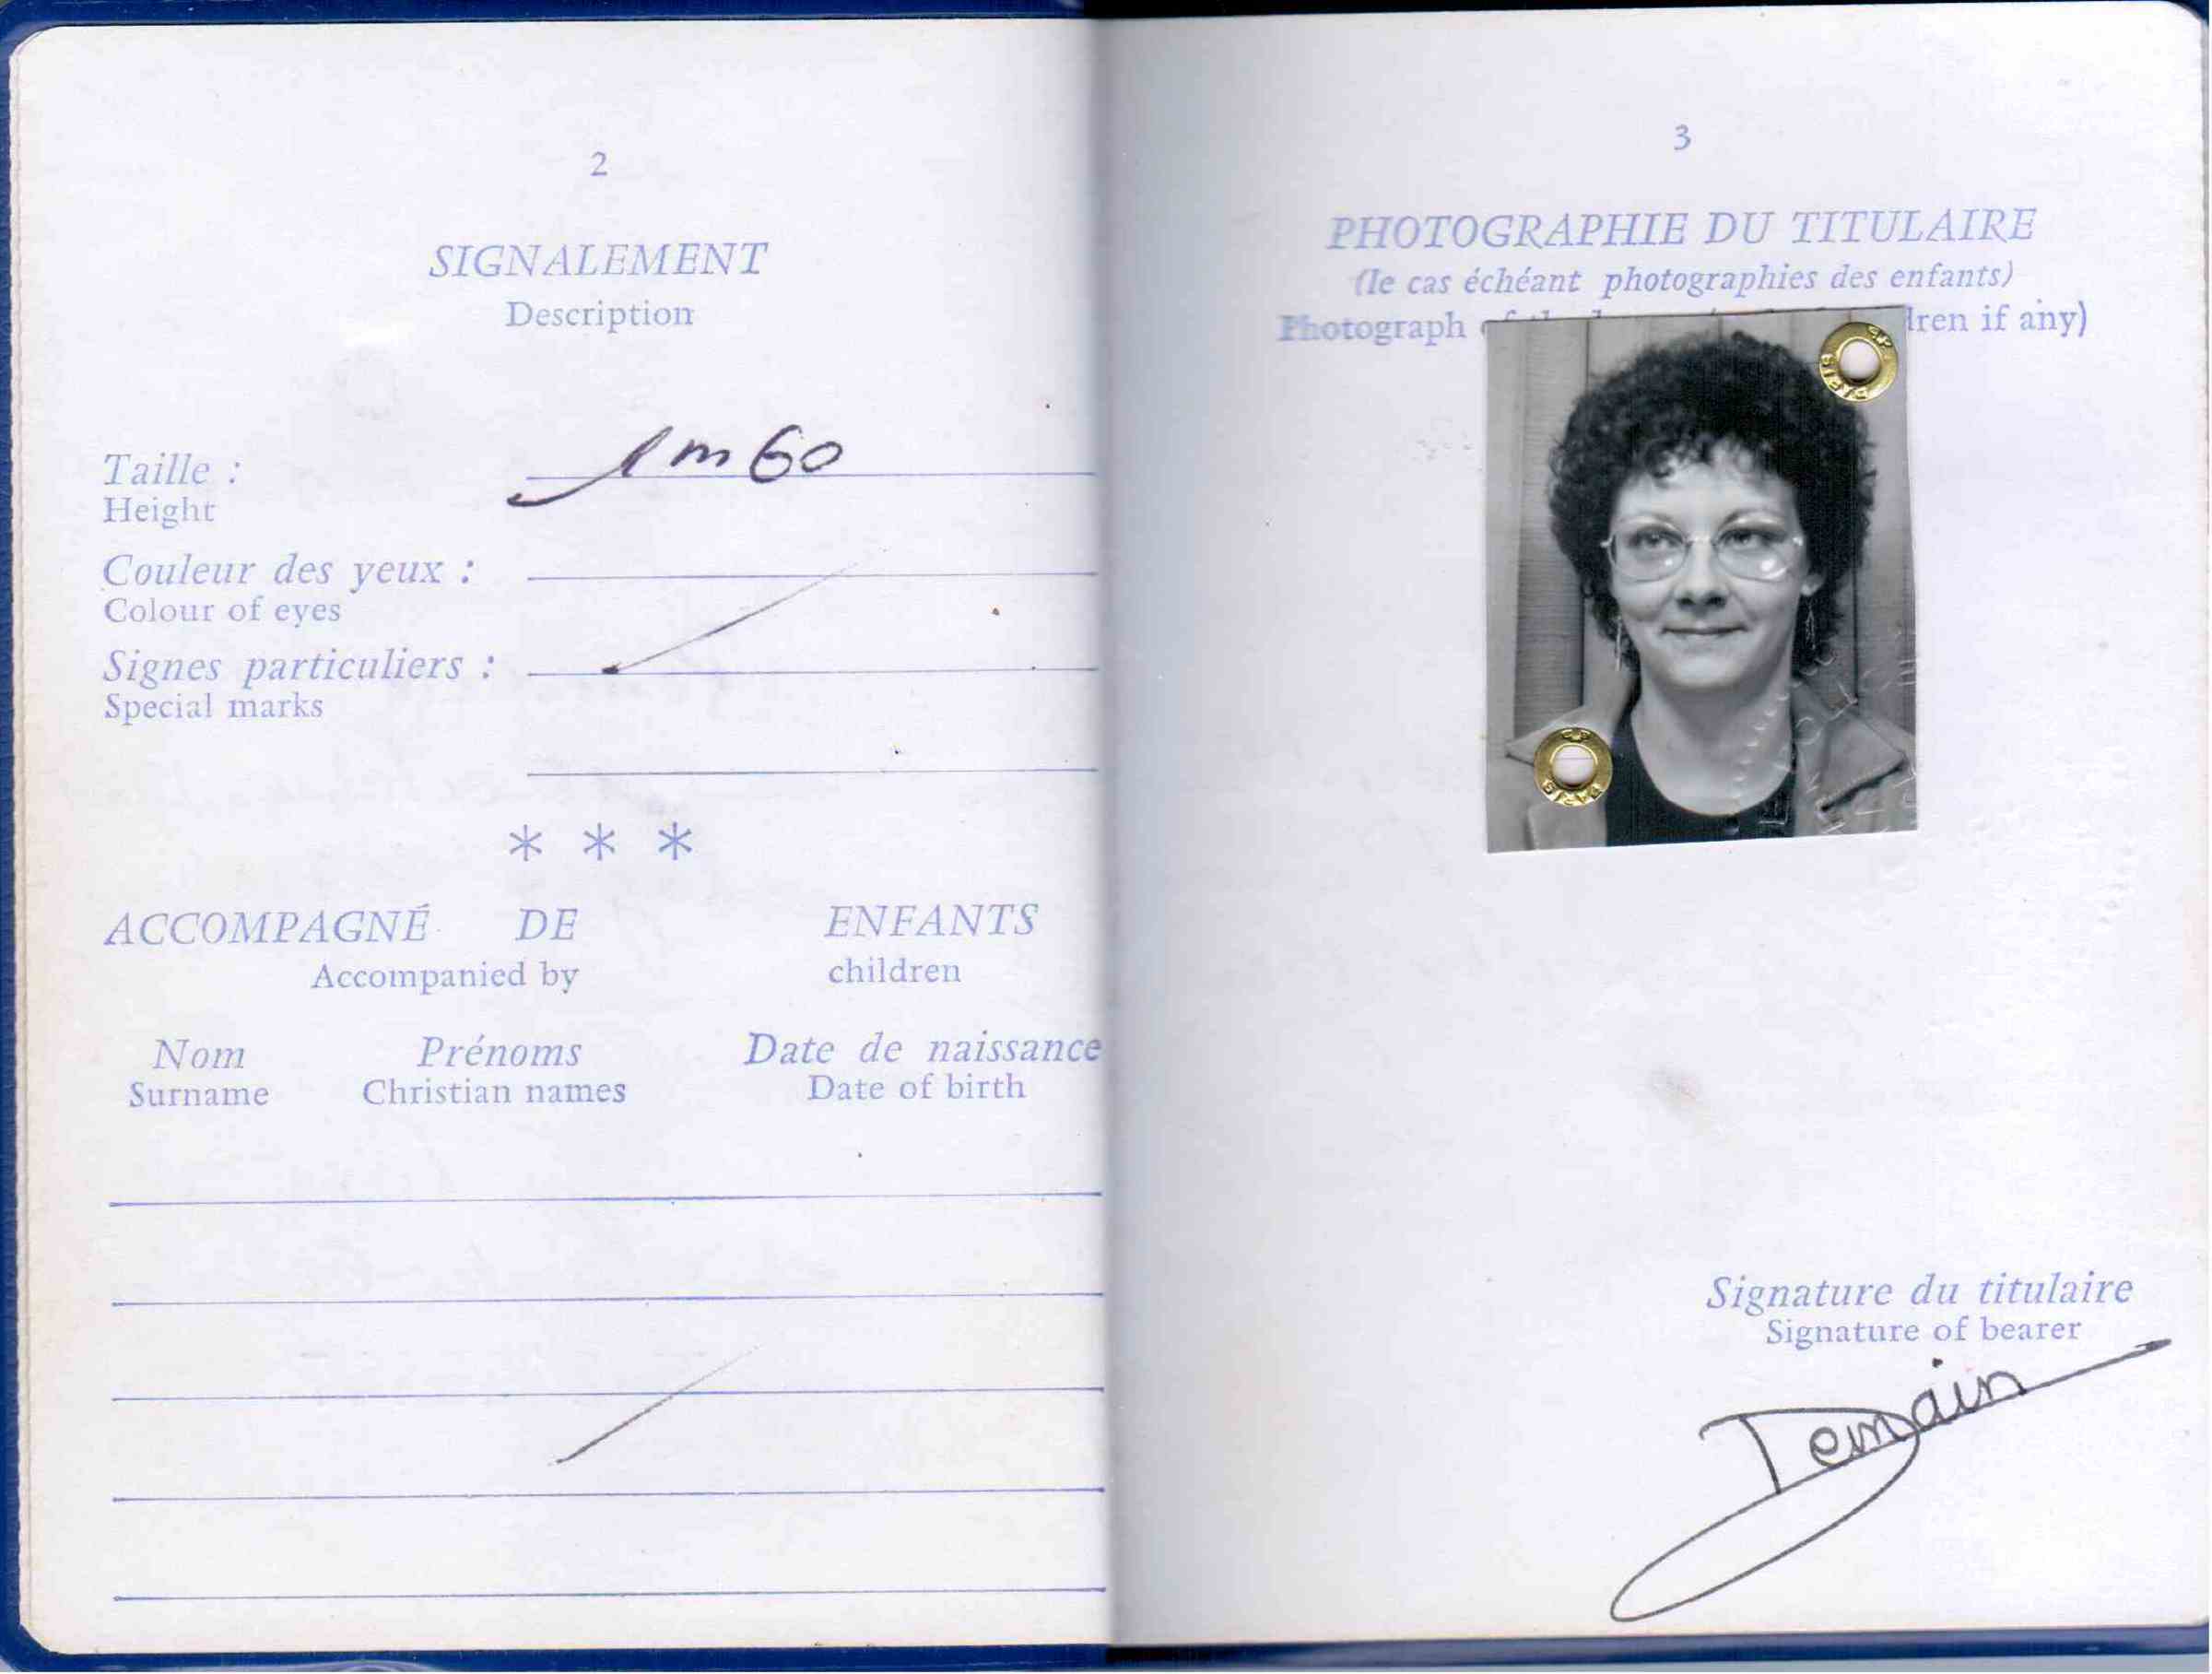 2
SIGNALEMENT
Description
Taille : 1m60
Height
Couleur des yeux :
Colour of eyes
Signes particuliers :
Special marks
* * *
ACCOMPAGNÉ DE ENFANTS
Accompanied by children
Nom Prénoms Date de naissance
Surname Christian names Date of birth
3
PHOTOGRAPHIE DU TITULAIRE
(le cas échéant photographies des enfants)
Photograph if any)
PARIS
PARIS
Signature du titulaire
Signature of bearer
Demain